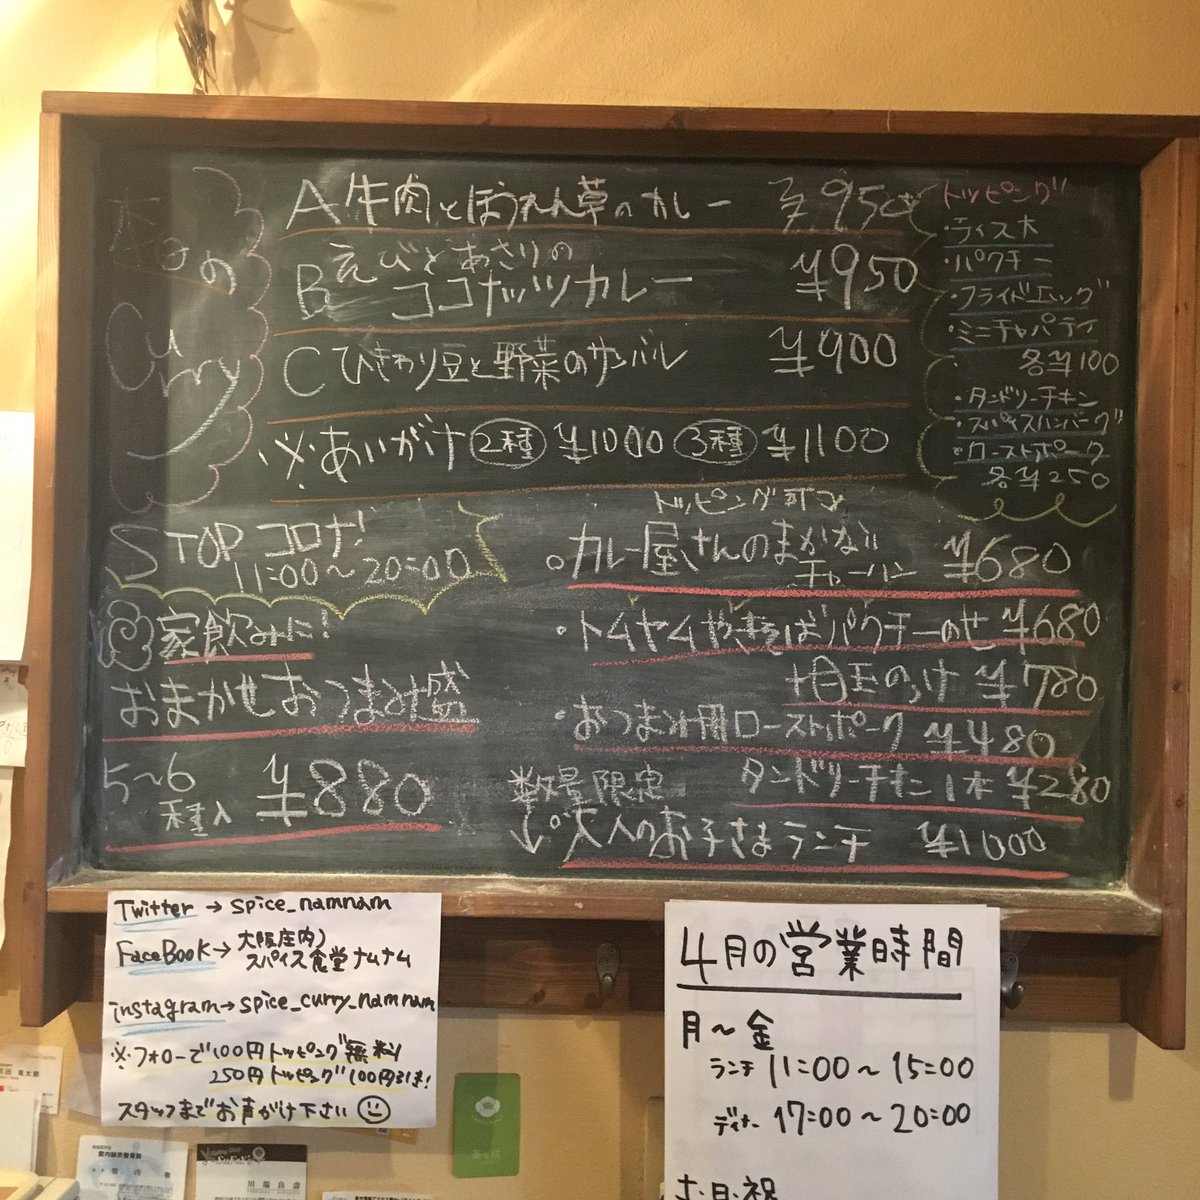 本日の
Curry
A 牛肉とほうれん草のカレー ¥950
B えびとあさりの
ココナッツカレー ¥950
C ひきわり豆と野菜のサンバル ¥900
※あいがけ 2種 ¥1000 3種 ¥1100
トッピング
・ライス大
・パクチー
・フライドエッグ
・ミニチャパティ
各¥100
・タンドリーチキン
・スパイスハンバーグ
・ローストポーク
各¥250
STOP コロナ!
11:00〜20:00
家飲みに!
おまかせおつまみ盛
5〜6
種入 ¥880
トッピング可
・カレー屋さんのまかない
チャーハン ¥680
・トムヤムやきそばパクチーのせ ¥680
+目玉のっけ ¥780
・おつまみ用ローストポーク ¥480
タンドリーチキン1本 ¥280
数量限定
↓・大人のお子さまランチ ¥1000
Twitter → spice_namnam
FaceBook → 大阪庄内
スパイス食堂ナムナム
instagram → spice_curry_namnam
※フォローで100円トッピング無料
250円トッピング100円引き!
スタッフまでお声がけ下さい
4月の営業時間
月〜金
ランチ 11:00〜15:00
ディナー 17:00〜20:00
土・日・祝